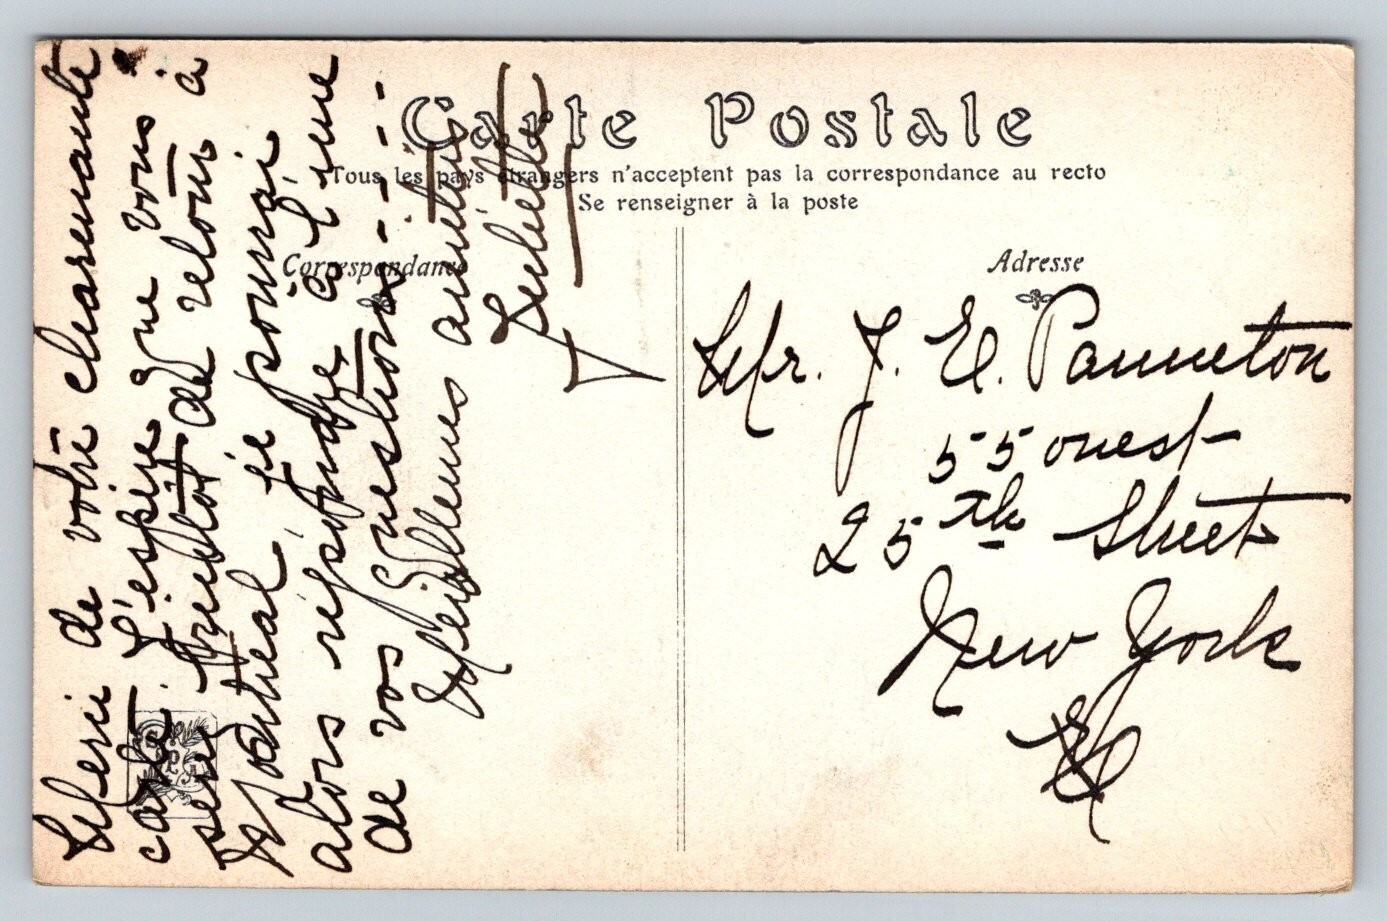 Carte Postale
Tous les pays étrangers n'acceptent pas la correspondance au recto
Se renseigner à la poste
Correspondance
Adresse
Merci de votre charmante
carte. J'espère que vous
serez bientôt de retour à
Montréal, je pourrai
alors répondre à l'une
de vos questions - - - -
Meilleures amitiés
Juliette
Mr. J. E. Panneton
55 ouest
25th Street
New York